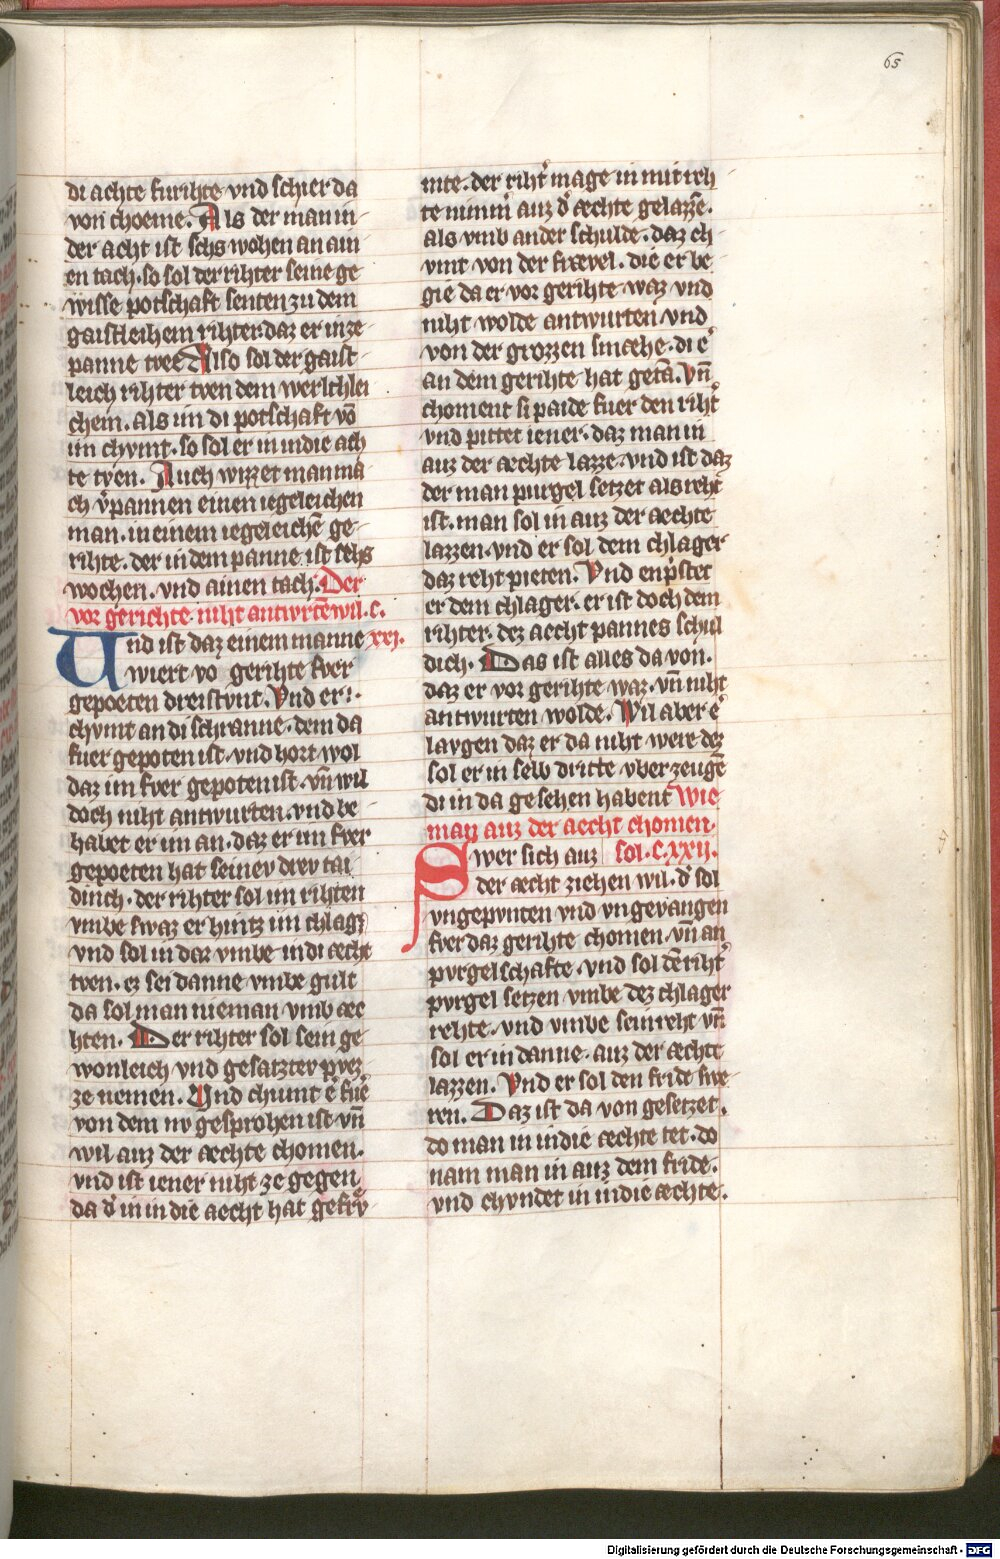 65
di achte furihte vnd schier da
von choeme. Als der man in
der acht ist sehs wohen an ain
en tach. so sol der rihter seine ge
wisse potschaft senten zu dem
gaistleihem rihter daz er in ze
panne tvee Also sol der gaist
leich rihter tven dem werltlei
chem. als im di potschaft võ
im chvmt. so sol er in in die ach
te tven. Auch wizzet man ma
ch v̾pannen einen iegeleichen
man. in einem iegeleichẽ ge
rihte. der in dem panne ist sehs
wochen. vnd ainen tach. Der
vor gerichte niht antwrtẽ wil. c.
Und ist daz einem manne xxi.
wiert vo gerihte fver
gepoeten dreistvnt. Vnd er
chvmt an di schranne. dem da
fuer gepoten ist. vnd hort wol
daz im fver gepoten ist. vñ wil
doch niht antwurten. vnd be
habet er im an. daz er im fver
gepoeten hat seinev drev tai
dinch. der rihter sol im rihten
vmbe swaz er hintz im chlagt
vnd sol in dar vmbe in di aecht
tven. ez sei danne vmbe gult
da sol man nieman vmb aec
hten. Der rihter sol sein ge
wonleich vnd gesatzter pvez
ze nemen. Und chumt er fuer
von dem nv gesprohen ist vñ
wil auz der aechte chomen.
vnd ist iener niht ze gegen
da d̾ in in die aecht hat gefrv
mte. der riht̾ mage in mit reh
te nimm̾ auz d̾ aechte gelazzẽ.
als vmb ander schulde. daz ch
vmt von der fraevel. die er be
gie da er vor gerihte waz vnd
niht wolde antwurten vnd
von der grozzen smaehe. di e᷑
an dem gerihte hat getã. Vñ
choment si paide fuer den riht̾
vnd pittet iener. daz man in
auz der aechte lazze. vnd ist daz
der man purgel setzet als reht
ist. man sol in auz der aechte
lazzen. vnd er sol dem chlager
daz reht pieten. Vnd enp̾stet
er dem chlager. er ist doch dem
rihter. dez aecht pannes schul
dich. Das ist alles da von.
daz er vor gerihte waz. vñ niht
antwurten wolde. Wil aber e᷑
lavgen daz er da niht were dez
sol er in selb dritte vber zeugẽ
di in da gesehen habent Wie
man auz der aecht chomen.
Swer sich auz sol. c. xxij.
der aecht ziehen wil. d̾ sol
vngepvnten vnd vngevangen
fver daz gerihte chomen vñ an
pvrgelschafte. vnd sol dẽ riht̾
pvrgel setzen vmbe dez chlager
rehte. vnd vmbe sein reht vñ
sol er in danne. auz der aechte
lazzen. Vnd er sol den fride swe
ren. Daz ist da von gesetzet.
do man in in die aechte tet. do
nam man in auz dem fride.
vnd chvndet in in die aechte.
Digitalisierung gefördert durch die Deutsche Forschungsgemeinschaft - DFG